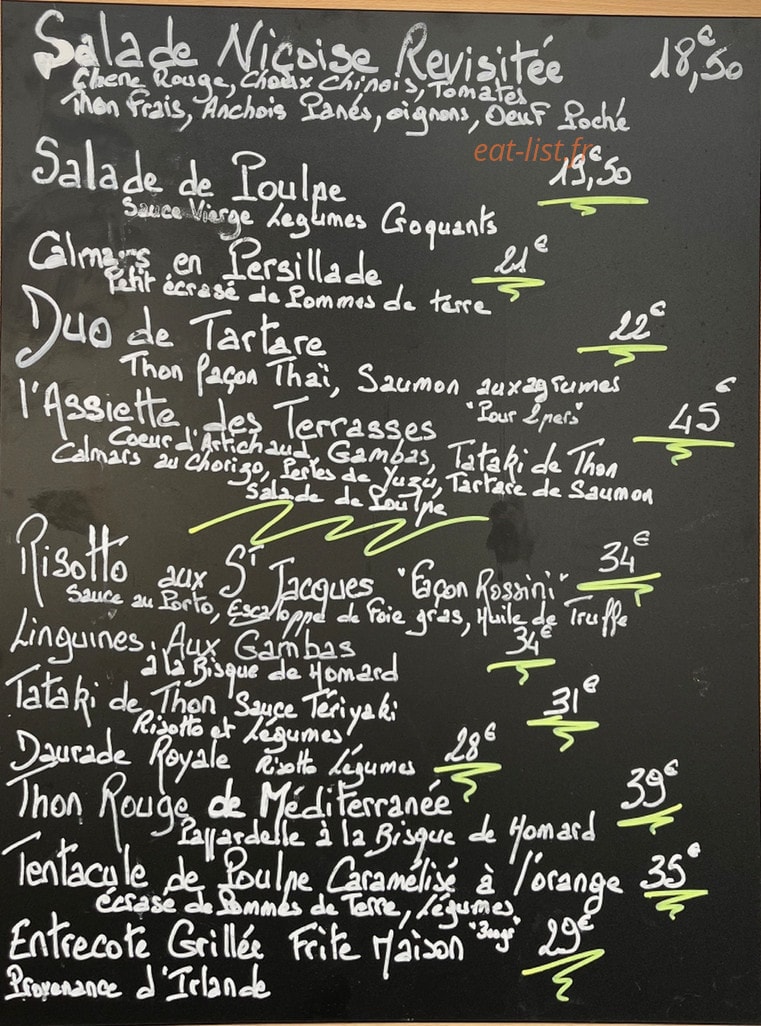 Salade Niçoise Revisitée 18,50€
Chene Rouge, Choux Chinois, Tomates
Thon Frais, Anchois Panés, oignons, Oeuf Poché
eat-list.fr
Salade de Poulpe 19,50€
Sauce Vierge Legumes Croquants
Calmars en Persillade 21€
Petit écrasé de Pommes de terre
Duo de Tartare 22€
Thon façon Thaï, Saumon aux agrumes
l'Assiette des Terrasses "Pour 2 pers" 45€
Coeur d'Artichaud, Gambas, Tataki de Thon
Calmars au Chorizo, Perles de Yuzu, Tartare de Saumon
Salade de Poulpe
Risotto aux St Jacques "Façon Rossini" 34€
Sauce au Porto, Escaloppe de Foie gras, Huile de Truffe
Linguines Aux Gambas 34€
à la Bisque de Homard
Tataki de Thon Sauce Tériyaki 31€
Risotto et Légumes
Daurade Royale Risotto Légumes 28€
Thon Rouge de Méditerranée 39€
Pappardelle à la Bisque de Homard
Tentacule de Poulpe Caramélisé à l'orange 35€
écrasé de Pommes de Terre, Légumes
Entrecote Grillée Frite Maison "300gr" 29€
Provenance d'Irlande